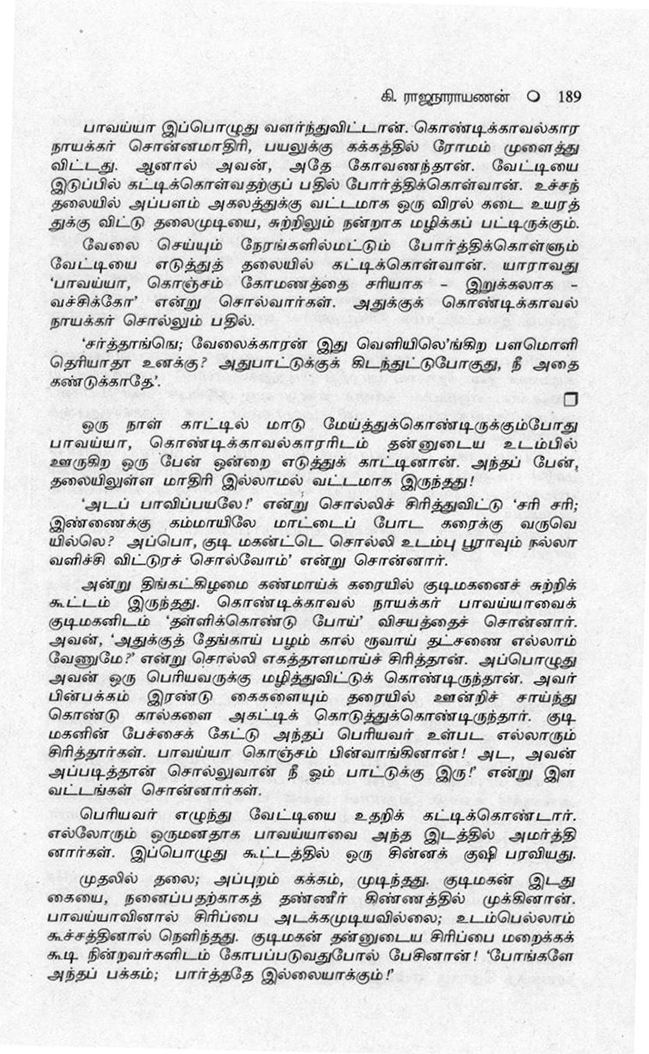 கி. ராஜநாராயணன் O 189
பாவய்யா இப்பொழுது வளர்ந்துவிட்டான். கொண்டிக்காவல்கார
நாயக்கர் சொன்னமாதிரி, பயலுக்கு கக்கத்தில் ரோமம் முளைத்து
விட்டது. ஆனால் அவன், அதே கோவணந்தான். வேட்டியை
இடுப்பில் கட்டிக்கொள்வதற்குப் பதில் போர்த்திக்கொள்வான். உச்சந்
தலையில் அப்பளம் அகலத்துக்கு வட்டமாக ஒரு விரல் கடை உயரத்
துக்கு விட்டு தலைமுடியை, சுற்றிலும் நன்றாக மழிக்கப் பட்டிருக்கும்.
வேலை செய்யும் நேரங்களில்மட்டும் போர்த்திக்கொள்ளும்
வேட்டியை எடுத்துத் தலையில் கட்டிக்கொள்வான். யாராவது
'பாவய்யா, கொஞ்சம் கோமணத்தை சரியாக – இறுக்கலாக –
வச்சிக்கோ' என்று சொல்வார்கள். அதுக்குக் கொண்டிக்காவல்
நாயக்கர் சொல்லும் பதில்.
'சர்த்தாங்ஙெ; வேலைக்காரன் இது வெளியிலெ'ங்கிற பளமொளி
தெரியாதா உனக்கு? அதுபாட்டுக்குக் கிடந்துட்டுபோகுது, நீ அதை
கண்டுக்காதே'.
❐
ஒரு நாள் காட்டில் மாடு மேய்த்துக்கொண்டிருக்கும்போது
பாவய்யா, கொண்டிக்காவல்காரரிடம் தன்னுடைய உடம்பில்
ஊருகிற ஒரு பேன் ஒன்றை எடுத்துக் காட்டினான். அந்தப் பேன்,
தலையிலுள்ள மாதிரி இல்லாமல் வட்டமாக இருந்தது!
'அடப் பாவிப்பயலே!' என்று சொல்லிச் சிரித்துவிட்டு 'சரி சரி;
இண்ணைக்கு கம்மாயிலே மாட்டைப் போட கரைக்கு வருவெ
யில்லெ? அப்பொ, குடி மகன்ட்டெ சொல்லி உடம்பு பூராவும் நல்லா
வளிச்சி விட்டுரச் சொல்வோம்' என்று சொன்னார்.
அன்று திங்கட்கிழமை கண்மாய்க் கரையில் குடிமகனைச் சுற்றிக்
கூட்டம் இருந்தது. கொண்டிக்காவல் நாயக்கர் பாவய்யாவைக்
குடிமகனிடம் 'தள்ளிக்கொண்டு போய்' விசயத்தைச் சொன்னார்.
அவன், 'அதுக்குத் தேங்காய் பழம் கால் ரூவாய் தட்சணை எல்லாம்
வேணுமே?' என்று சொல்லி எகத்தாளமாய்ச் சிரித்தான். அப்பொழுது
அவன் ஒரு பெரியவருக்கு மழித்துவிட்டுக் கொண்டிருந்தான். அவர்
பின்பக்கம் இரண்டு கைகளையும் தரையில் ஊன்றிச் சாய்ந்து
கொண்டு கால்களை அகட்டிக் கொடுத்துக்கொண்டிருந்தார். குடி
மகனின் பேச்சைக் கேட்டு அந்தப் பெரியவர் உள்பட எல்லாரும்
சிரித்தார்கள். பாவய்யா கொஞ்சம் பின்வாங்கினான்! அட, அவன்
அப்படித்தான் சொல்லுவான் நீ ஓம் பாட்டுக்கு இரு!' என்று இள
வட்டங்கள் சொன்னார்கள்.
பெரியவர் எழுந்து வேட்டியை உதறிக் கட்டிக்கொண்டார்.
எல்லோரும் ஒருமனதாக பாவய்யாவை அந்த இடத்தில் அமர்த்தி
னார்கள். இப்பொழுது கூட்டத்தில் ஒரு சின்னக் குஷி பரவியது.
முதலில் தலை; அப்புறம் கக்கம், முடிந்தது. குடிமகன் இடது
கையை, நனைப்பதற்காகத் தண்ணீர் கிண்ணத்தில் முக்கினான்.
பாவய்யாவினால் சிரிப்பை அடக்கமுடியவில்லை; உடம்பெல்லாம்
கூச்சத்தினால் நெளிந்தது. குடிமகன் தன்னுடைய சிரிப்பை மறைக்கக்
கூடி நின்றவர்களிடம் கோபப்படுவதுபோல் பேசினான்! 'போங்களே
அந்தப் பக்கம்; பார்த்ததே இல்லையாக்கும்!'